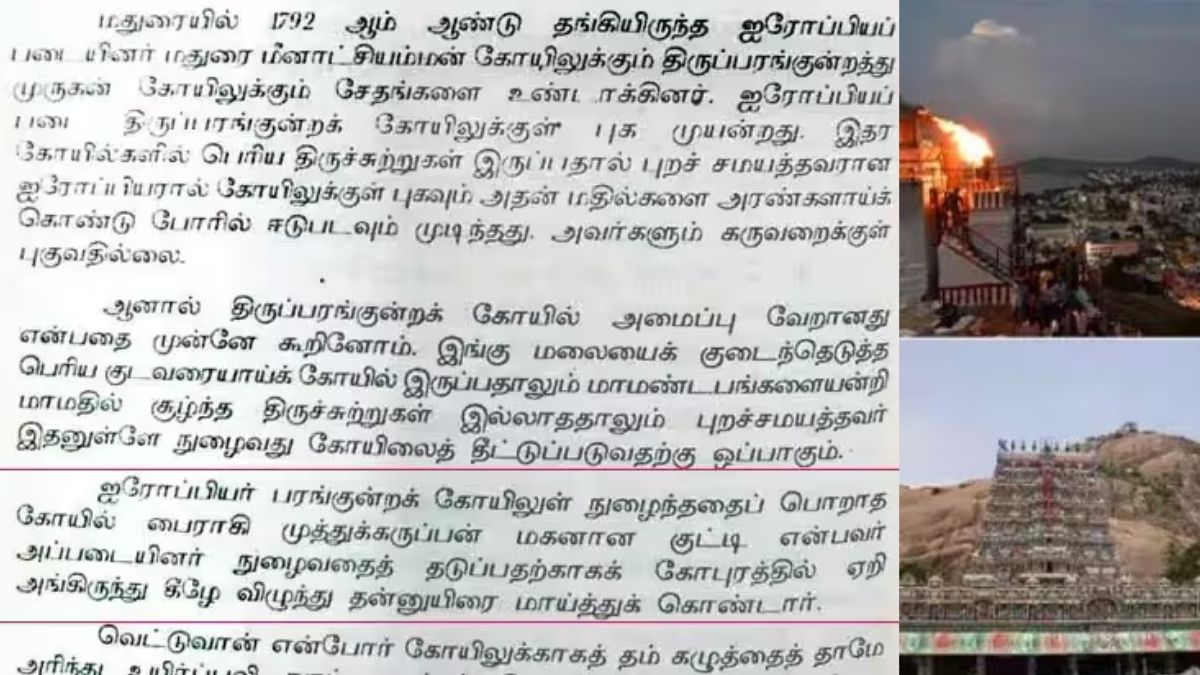 மதுரையில் 1792 ஆம் ஆண்டு தங்கியிருந்த ஐரோப்பியப்
படையினர் மதுரை மீனாட்சியம்மன் கோயிலுக்கும் திருப்பரங்குன்றத்து
முருகன் கோயிலுக்கும் சேதங்களை உண்டாக்கினர். ஐரோப்பியப்
படை திருப்பரங்குன்றக் கோயிலுக்குள் புக முயன்றது. இதர
கோயில்களில் பெரிய திருச்சுற்றுகள் இருப்பதால் புறச் சமயத்தவரான
ஐரோப்பியரால் கோயிலுக்குள் புகவும் அதன் மதில்களை அரண்களாய்க்
கொண்டு போரில் ஈடுபடவும் முடிந்தது. அவர்களும் கருவறைக்குள்
புகுவதில்லை.
ஆனால் திருப்பரங்குன்றக் கோயில் அமைப்பு வேறானது
என்பதை முன்னே கூறினோம். இங்கு மலையைக் குடைந்தெடுத்த
பெரிய குடவரையாய்க் கோயில் இருப்பதாலும் மாமண்டபங்களையன்றி
மாமதில் சூழ்ந்த திருச்சுற்றுகள் இல்லாததாலும் புறச்சமயத்தவர்
இதனுள்ளே நுழைவது கோயிலைத் தீட்டுப்படுவதற்கு ஒப்பாகும்.
ஐரோப்பியர் பரங்குன்றக் கோயிலுள் நுழைந்ததைப் பொறாத
கோயில் பைராகி முத்துக்கருப்பன் மகனான குட்டி என்பவர்
அப்படையினர் நுழைவதைத் தடுப்பதற்காகக் கோபுரத்தில் ஏறி
அங்கிருந்து கீழே விழுந்து தன்னுயிரை மாய்த்துக் கொண்டார்.
வெட்டுவான் என்போர் கோயிலுக்காகத் தம் கழுத்தைத் தாமே
அரிந்து